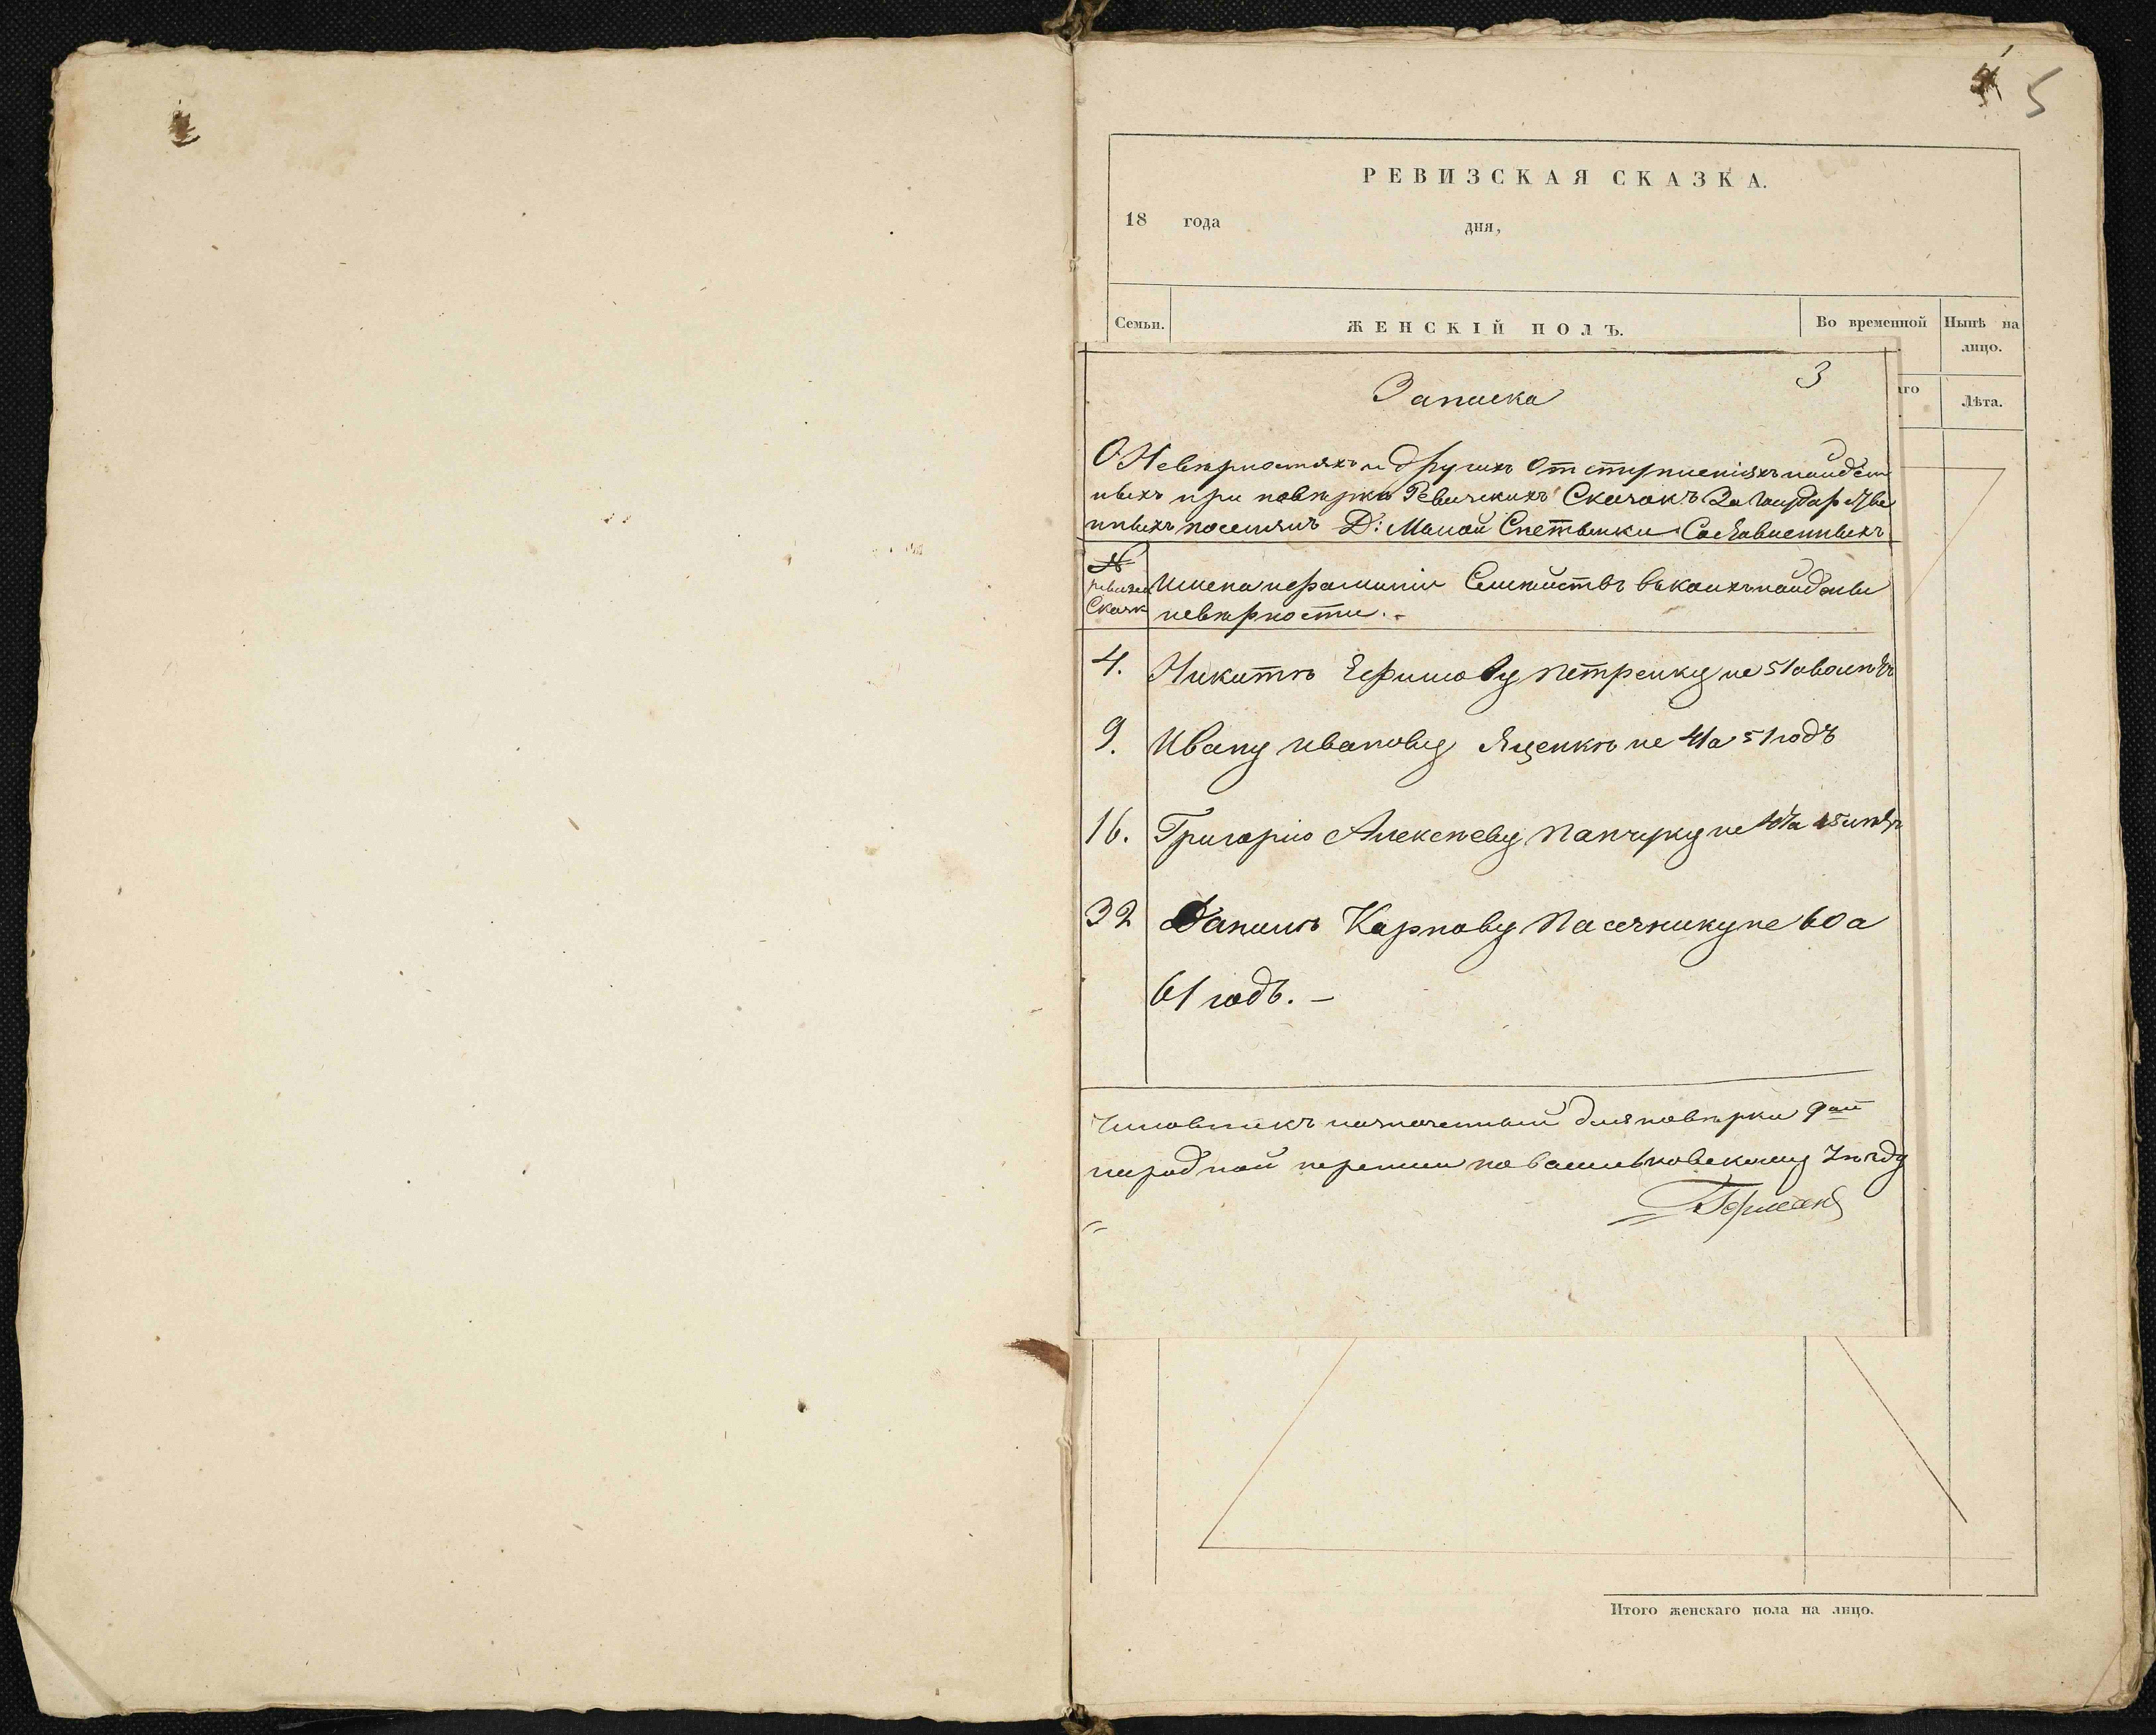 5
РЕВИЗСКАЯ СКАЗКА.
18 года дня,
Семьи. ЖЕНСКІЙ ПОЛЪ. Во временной Нынѣ на
лицо.
Лѣта.
3
Записка
О Невѣрностяхъ и другихъ Отступленіяхъ найден
ныхъ при повѣрке Ревизскихъ Сказокъ За Государстве
нныхъ поселянъ Д: Малой Снетынки Составленныхъ
№
ревизск
Сказк
Имена и фамиліи Семействъ въ коихъ найдены
невѣрности. -
4. Никитѣ Ефимову Петренку не 51 а
9. Ивану Иванову Яценкѣ не 41 а 51 годъ
16. Григорію Алексѣеву Панчуку не
32 Данилѣ Карпову Пасечнику не 60 а
61 годъ. -
Чиновникъ назначенный для повѣрки 9ой
народной переписи по Васильковскому Уѣзду
Итого женскаго пола на лицо.